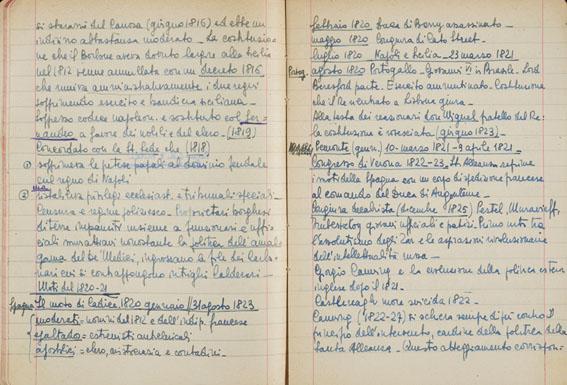 si stacarsi dal Canosa (giugno 1816) ed ebbe un
indirizzo abbastanza moderato – La costituzio-
ne che il Borbone aveva dovuto largire alla Sicilia
nel 1812 venne annullata con un decreto 1816
che univa amministrativamente i due regni
sopprimento esercito e bandiera siciliana –
soppresso codice napoleon. e sostituito col Fer-
nandeo a favore dei nobili e del clero – (1819)
Concordato con la St. Sede che (1818)
① sopprimeva le pretese papali al dominio feudale
sul regno di Napoli
ma
② ristabiliva privilegi ecclesiast. e tribunali speciali –
Censura e regime poliziesco – Proprietari borghesi
di terre impauriti insieme a funzionari e uffi-
ciali murattiani nonostante la politica dell'amal-
gama del De Medici, ingrossano le file dei Carbo-
nari cui si contrappongono i Calderari –
Moti del 1820-21
Spagna Il moto di Cadice, 1820 gennaio / 31 agosto 1823
moderati = uomini del 1812 e dell'indip. francese
esaltados = estremisti anticlericali
apostolici = clero, aristocrazia e contadini –
febbraio 1820 Duca di Berry assassinato –
maggio 1820 Congiura di Cato Street –
luglio 1820 Napoli e Sicilia – 23 marzo 1821
Portog. agosto 1820 Portogallo – Giovanni VI in Brasile. Lord
Beresford parte. Esercito ammutinato. Costituzione
che il Re rientrato a Lisbona giura –
Alla testa dei reazionari don Miguel fratello del Re:
la costituzione è rovesciata (giugno 1823) –
Piemonte 10 marzo 1821 – 9 aprile 1821 –
Congresso di Verona 1822-23. St. Alleanza reprime
i moti della Spagna con un corpo di spedizione francese
al comando del Duca di Angoulême –
Congiura decabrista (dicembre 1825) Pestel, Muravieff,
Trubetzkoy giovani ufficiali e patrizi. Primo urto tra
l'assolutismo degli Zar e le aspirazioni rivoluzionarie
dell'intellettualità russa –
Giorgio Canning e la evoluzione della politica estera
inglese dopo il 1821 –
Castlereagh muore suicida 1822 –
Canning (1822-27) si schiera sempre di più contro il
principio dell'intervento, cardine della politica della
Santa Alleanza – Questo atteggiamento corrispon=